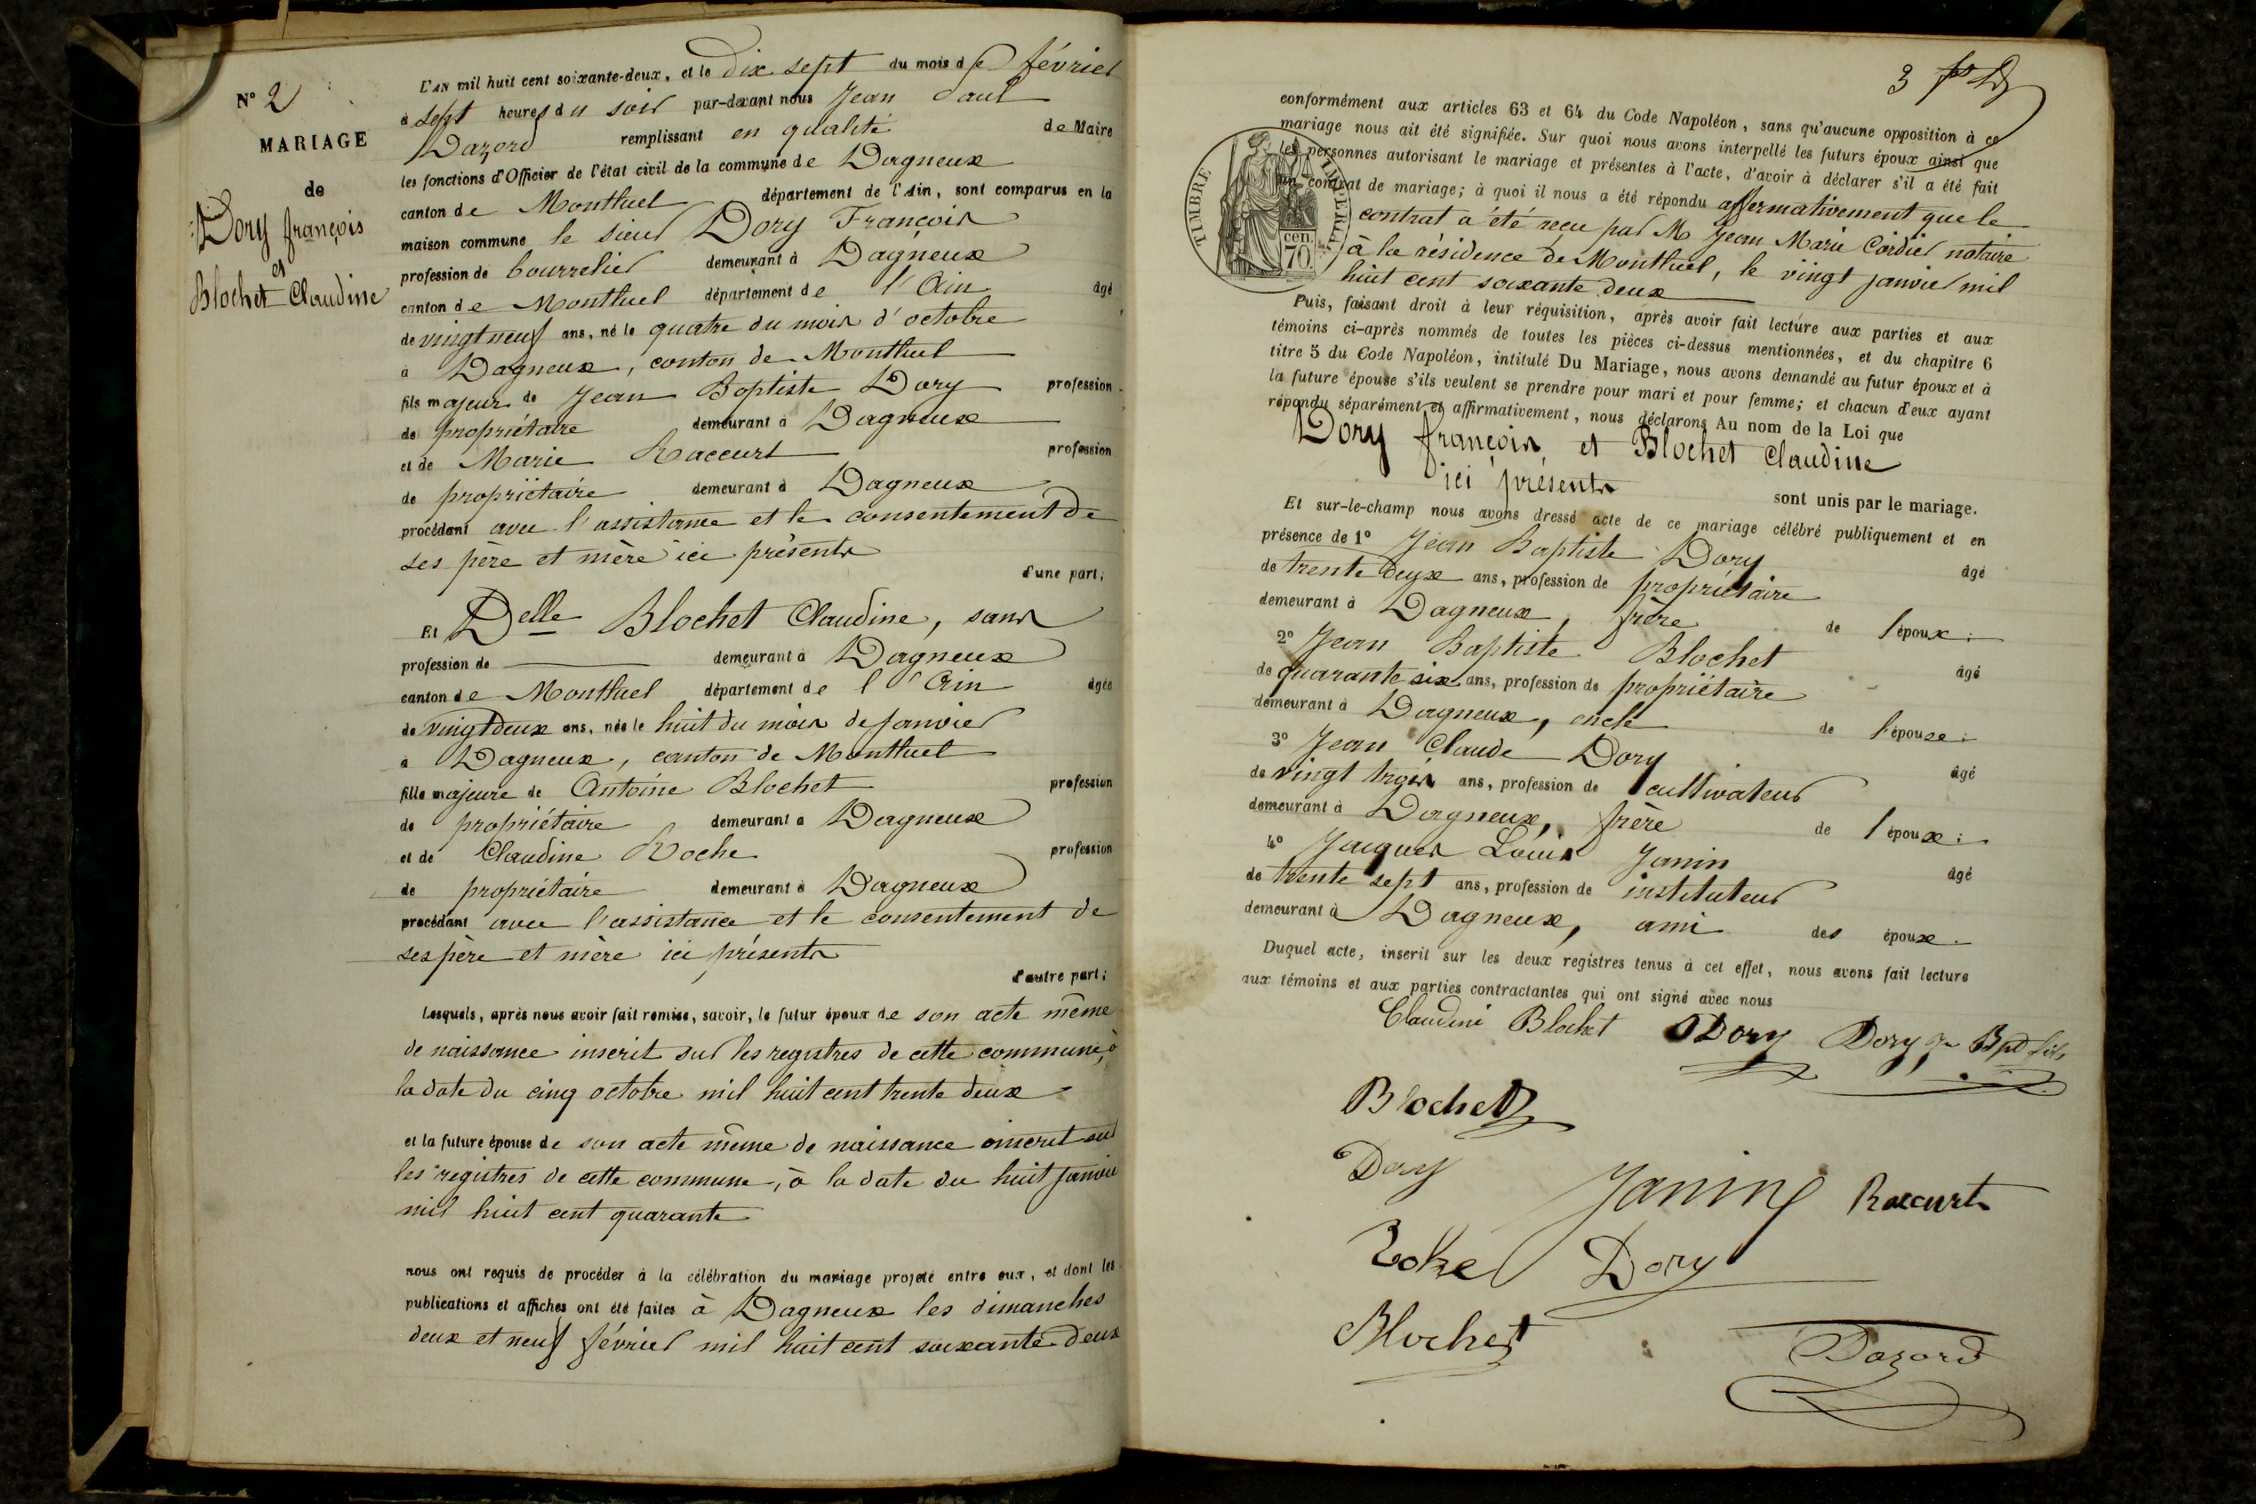 N° 2
MARIAGE
de
Dory françois
et
Blochet Claudine
L'AN mil huit cent soixante-deux, et le dix sept du mois de février
à sept heures du soir par-devant nous Jean Paul
Dazord remplissant en qualité de Maire
les fonctions d'Officier de l'état civil de la commune de Dagneux
canton de Montluel département de l'Ain, sont comparus en la
maison commune le sieur Dory François
profession de bourrelier demeurant à Dagneux
canton de Montluel département de l'Ain âgé
de vingt neuf ans, né le quatre du mois d'octobre
à Dagneux, canton de Montluel
fils majeur de Jean Baptiste Dory profession
de propriétaire demeurant à Dagneux
et de Marie Raccurt profession
de propriétaire demeurant à Dagneux
procédant avec l'assistance et le consentement de
ses père et mère ici présents
d'une part;
Et Delle Blochet Claudine, sans
profession de demeurant à Dagneux
canton de Montluel département de l'Ain âgée
de vingt deux ans, née le huit du mois de janvier
à Dagneux, canton de Montluel
fille majeure de Antoine Blochet profession
de propriétaire demeurant à Dagneux
et de Claudine Roche profession
de propriétaire demeurant à Dagneux
procédant avec l'assistance et le consentement de
ses père et mère ici présents
d'autre part;
Lesquels, après nous avoir fait remise, savoir, le futur époux de son acte même
de naissance inscrit sur les registres de cette commune, à
la date du cinq octobre mil huit cent trente deux
et la future épouse de son acte même de naissance inscrit sur
les registres de cette commune, à la date du huit janvier
mil huit cent quarante
nous ont requis de procéder à la célébration du mariage projeté entre eux, et dont les
publications et affiches ont été faites à Dagneux les dimanches
deux et neuf février mil huit cent soixante deux
3
TIMBRE IMPERIAL
70 cen.
conformément aux articles 63 et 64 du Code Napoléon, sans qu'aucune opposition à ce
mariage nous ait été signifiée. Sur quoi nous avons interpellé les futurs époux ainsi que
les personnes autorisant le mariage et présentes à l'acte, d'avoir à déclarer s'il a été fait
un contrat de mariage; à quoi il nous a été répondu affirmativement que le
contrat a été reçu par M Jean Marie Cordier notaire
à la résidence de Montluel, le vingt janvier mil
huit cent soixante deux
Puis, faisant droit à leur réquisition, après avoir fait lecture aux parties et aux
témoins ci-après nommés de toutes les pièces ci-dessus mentionnées, et du chapitre 6
titre 5 du Code Napoléon, intitulé Du Mariage, nous avons demandé au futur époux et à
la future épouse s'ils veulent se prendre pour mari et pour femme; et chacun d'eux ayant
répondu séparément et affirmativement, nous déclarons Au nom de la Loi que
Dory françois et Blochet Claudine
ici présents
sont unis par le mariage.
Et sur-le-champ nous avons dressé acte de ce mariage célébré publiquement et en
présence de 1° Jean Baptiste Dory âgé
de trente deux ans, profession de propriétaire
demeurant à Dagneux, frère de l'époux;
2° Jean Baptiste Blochet âgé
de quarante six ans, profession de propriétaire
demeurant à Dagneux, oncle de l'épouse;
3° Jean Claude Dory âgé
de vingt trois ans, profession de cultivateur
demeurant à Dagneux, frère de l'époux;
4° Jacques Louis Janin âgé
de trente sept ans, profession de instituteur
demeurant à Dagneux, ami des époux.
Duquel acte, inscrit sur les deux registres tenus à cet effet, nous avons fait lecture
aux témoins et aux parties contractantes qui ont signé avec nous
Claudine Blochet Dory Dory Jn Bpte fils
Blochet
Dory
Janin Raccurt
Roche Dory
Blochet
Dazord